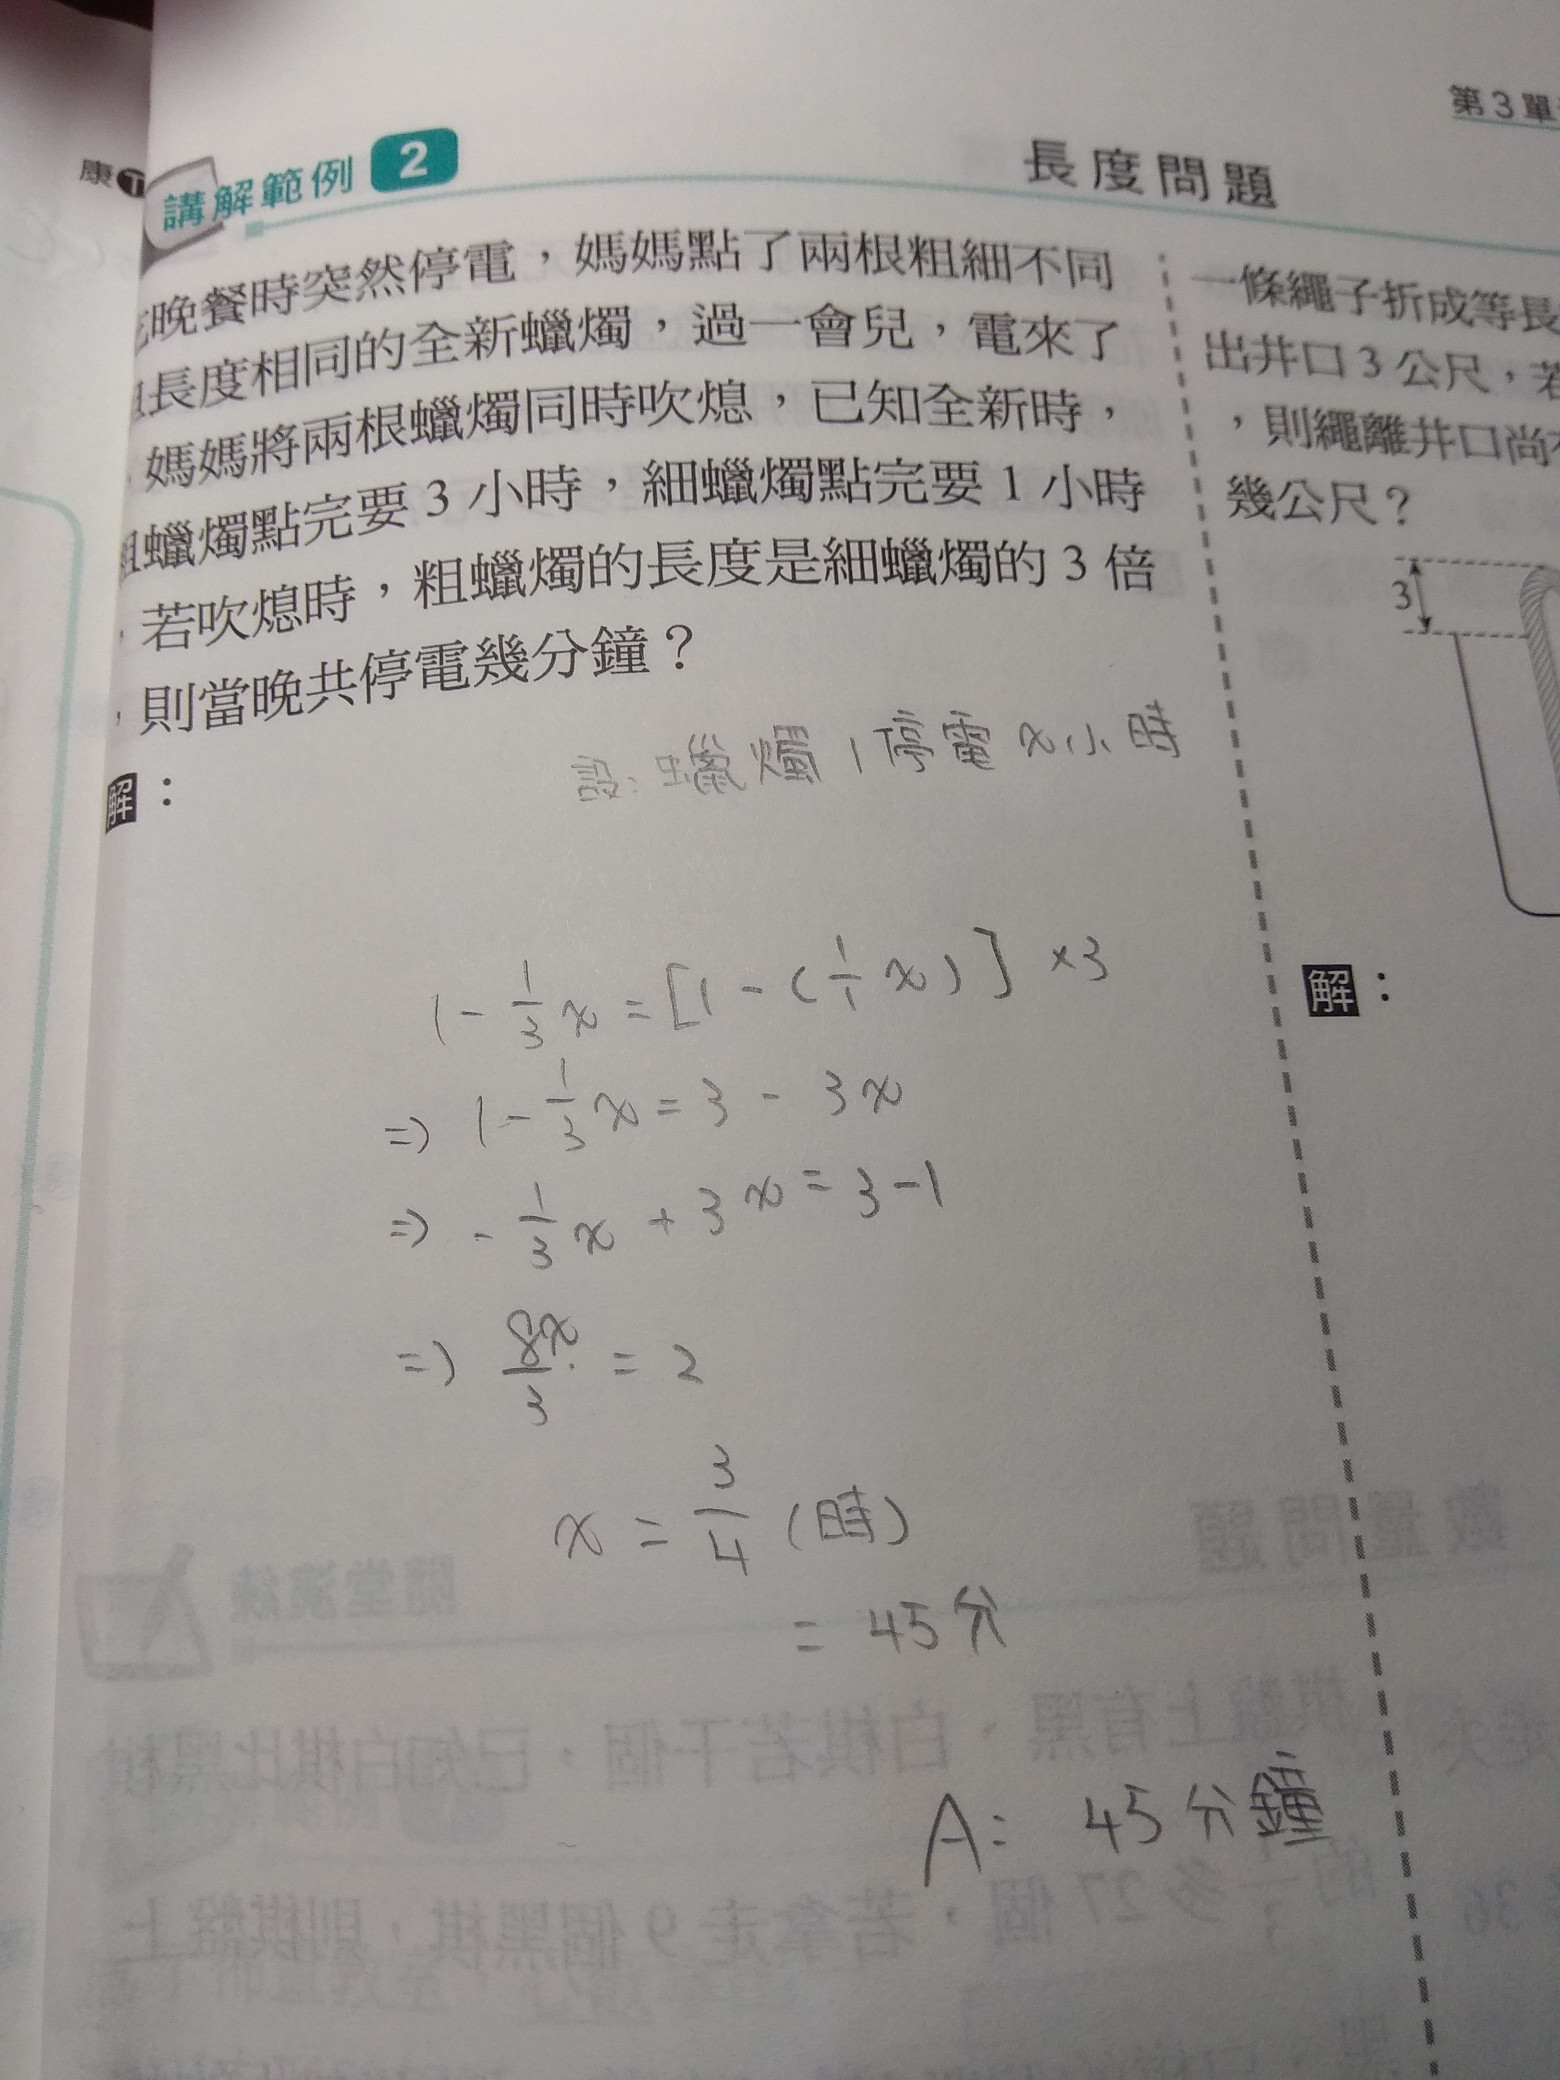 第3單
康
講解範例 2
長度問題
晚餐時突然停電，媽媽點了兩根粗細不同
長度相同的全新蠟燭，過一會兒，電來了
，媽媽將兩根蠟燭同時吹熄，已知全新時，
蠟燭點完要3小時，細蠟燭點完要1小時
，若吹熄時，粗蠟燭的長度是細蠟燭的3倍
，則當晚共停電幾分鐘？
解：
設：蠟燭1停電x小時
1-1/3x=[1-(1/1x)]×3
=> 1-1/3x=3-3x
=> -1/3x+3x=3-1
=> 8x/3=2
x=3/4(時)
=45分
A：45分鐘
一條繩子折成等長
出井口3公尺，若
，則繩離井口尚
幾公尺？
3
解：
數量問題
隨堂演練
棋盤上有黑、白棋若干個，已知白棋比黑棋
的1/3多27個，若拿走9個黑棋，則棋盤上
36